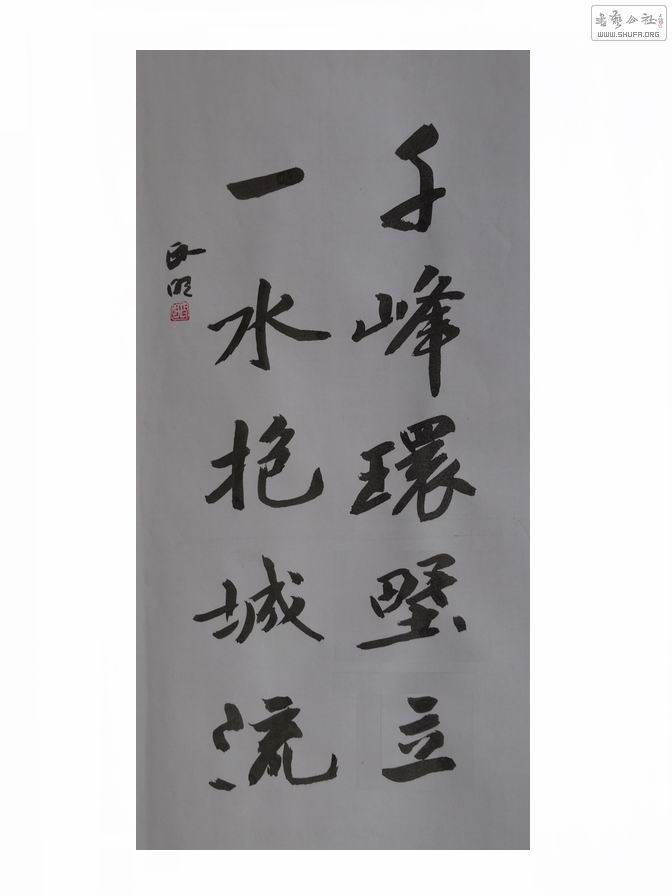 書藝公社
WWW.SHUFA.ORG
千峰環野立
一水抱城流